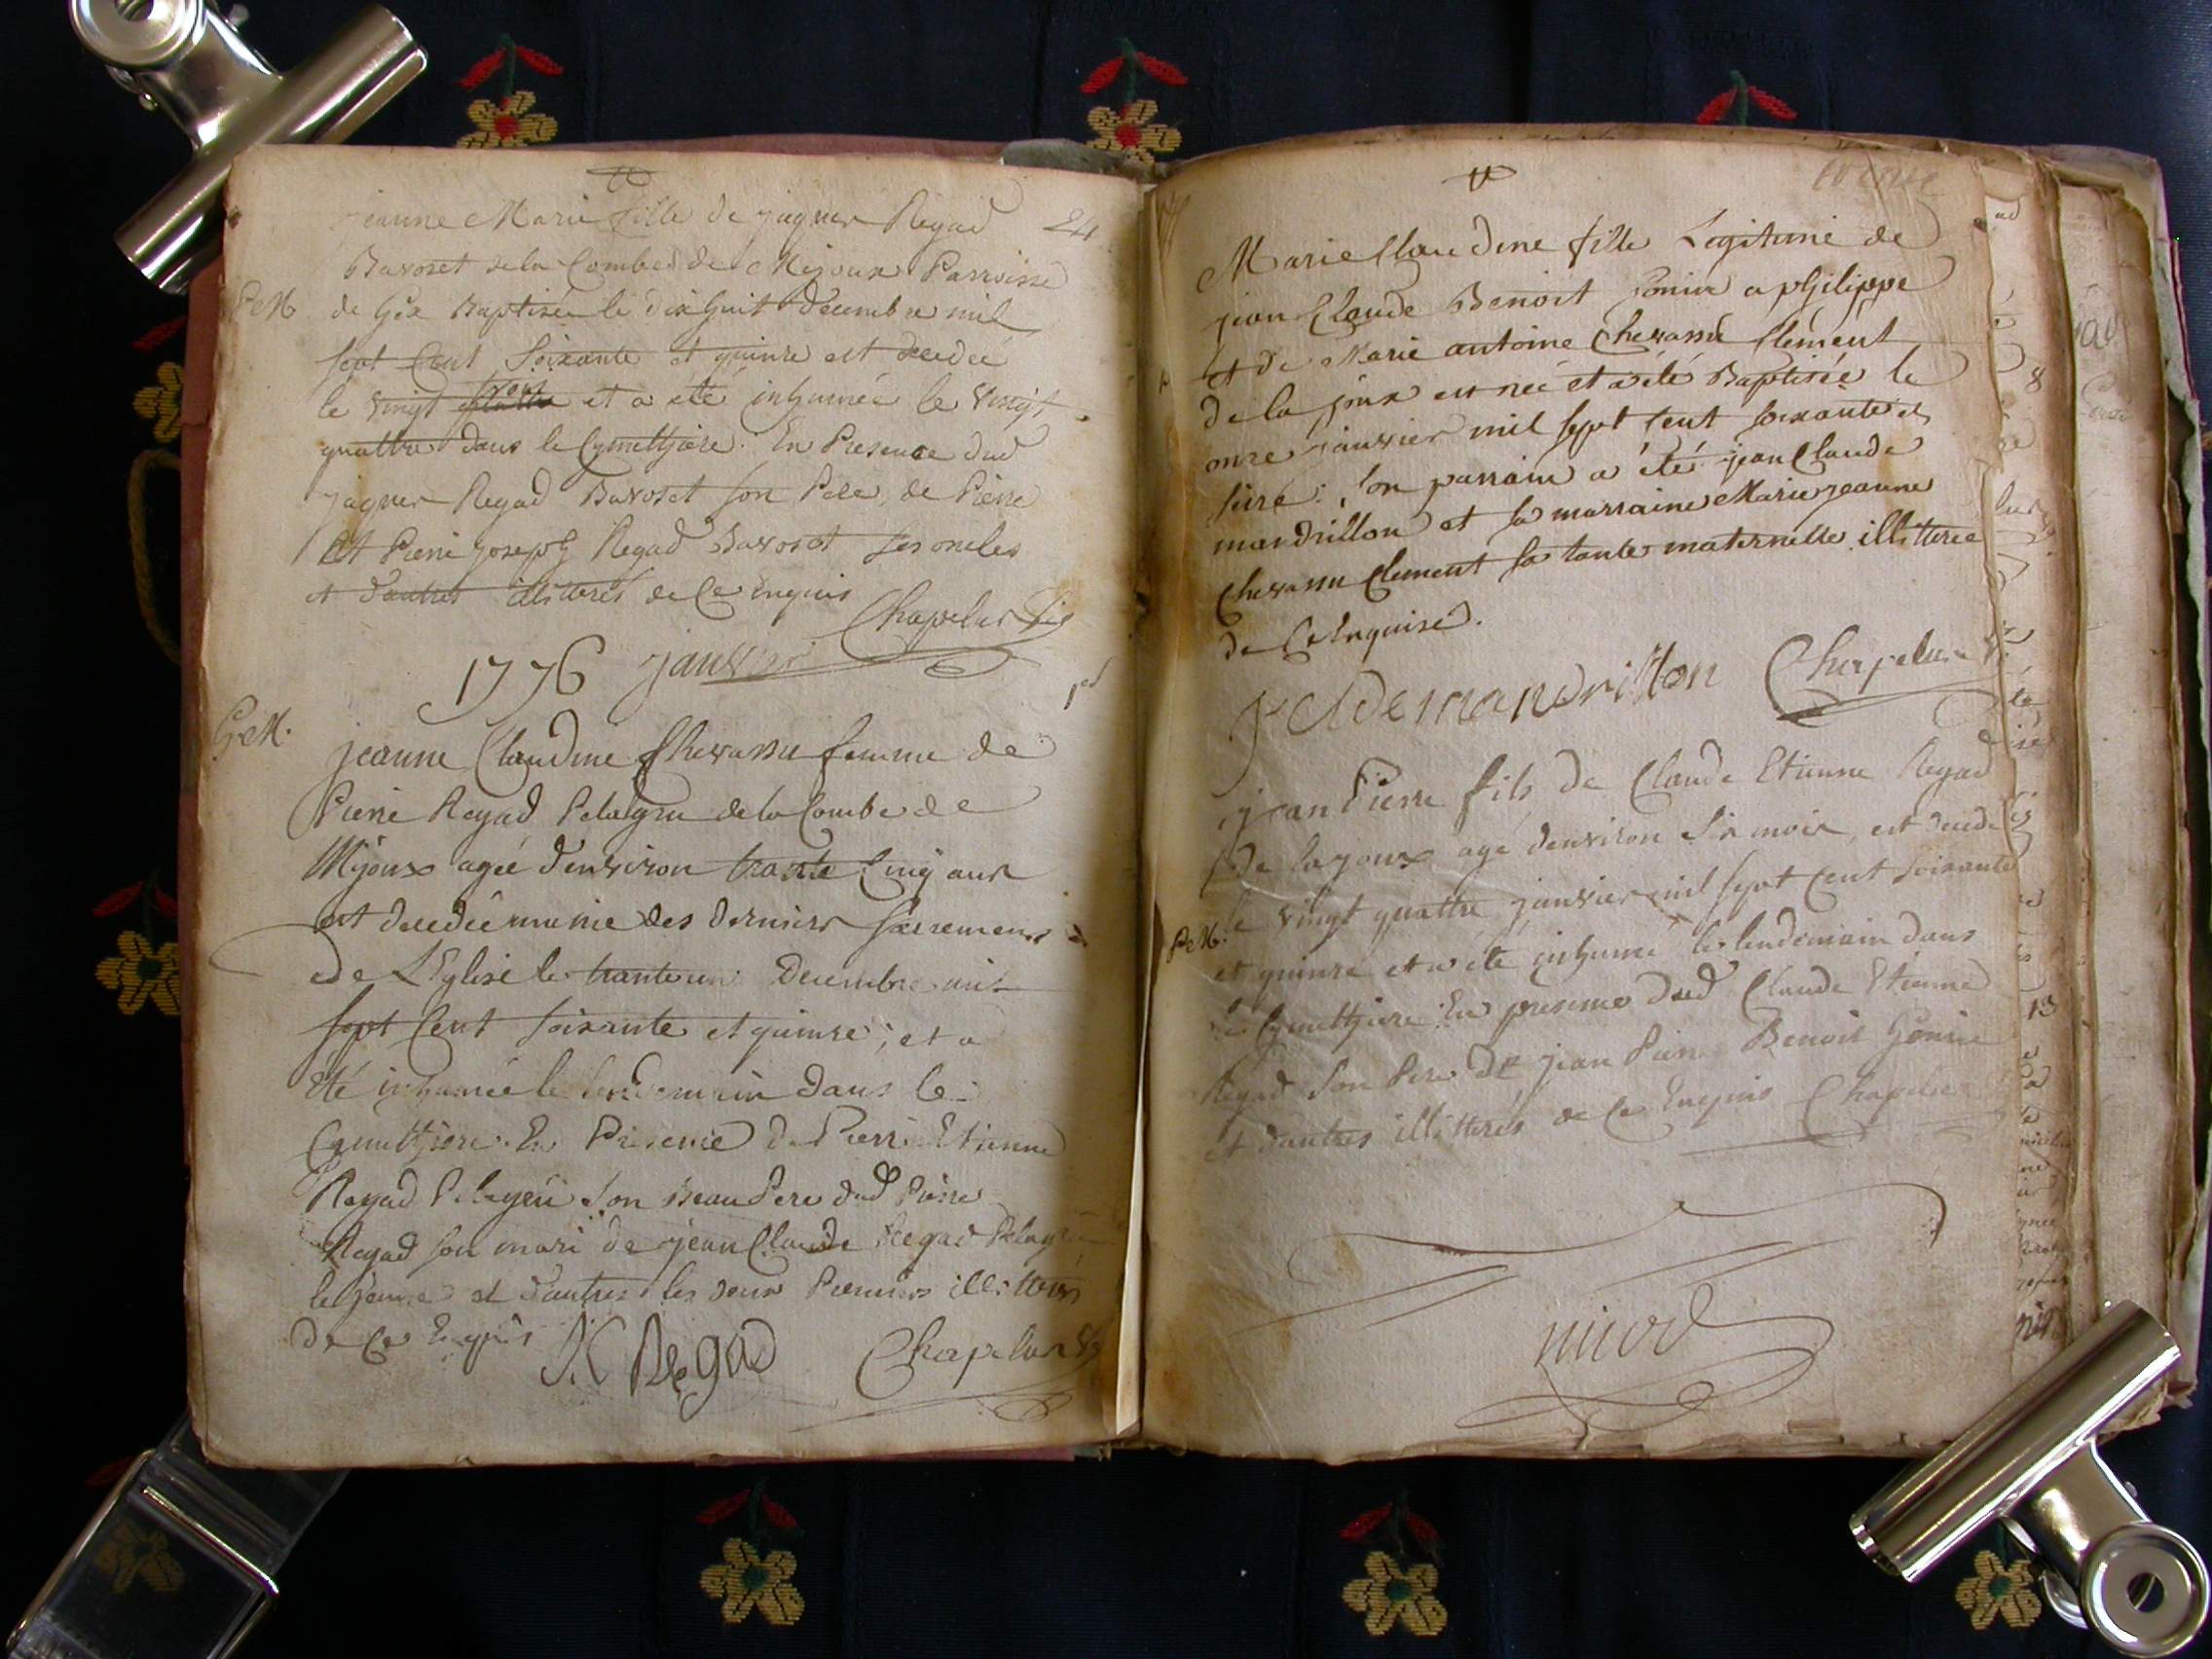 jeanne Marie fille de jaques Regad 24
Bavoset de la Combe de Mijoux Parroisse
PeM de Gex Baptisée le dix huit decembre mil
sept Cent Soixante et quinze est decedée
le vingt trois et a été inhumée le vingt
quattre dans le Cymettiere. En Presence dud
jaques Regad Bavoset son Pere, de Pierre
Et Pierre joseph Regad Bavoset ses oncles
et d'autres illitterés de Ce Enquis
Chapelus
1776 janvier
1er
GeM.
jeanne Claudine Chevassu femme de
Pierre Regad Pelagru de la Combe de
Mijoux agée d'environ trante Cinq ans
est decedée munie des derniers sacremens
de L'Eglise le trante un Decembre mil
sept Cent soixante et quinze; et a
été inhumée le lendemain dans le
Cymettiere. En Presence de Pierre Etienne
Regad Pelagru son Beau Pere dud Pierre
Regad son mari de jean Claude Regad Pelagru
le jeune et d'autres les deux Premiers illitterés
de Ce Enquis
JC Regad Chapelus
Marie Claudine fille Legitime de
jean Claude Benoit Gonin a philippe
et de Marie antoine Chevassu Clément
de la joux est née et a été Baptisée le
onze janvier mil sept cent soixante et
seize: son parrain a été jean Claude
mandrillon et sa marraine Marie jeanne
Chevassu Clement sa tante maternelle illitterée
de Ce Enquise.
mandrillon Chapelus
jean Pierre fils de Claude Etienne Regad
de lajoux agé d'environ Six mois, est decedé
le vingt quattre janvier mil sept Cent soixante
PeM.
et quinze et a été inhumé le lendemain dans
le Cymettiere En presence dud Claude Etienne
Regad son Pere de jean Pierre Benoit Gonin
et d'autres illitterés de Ce Enquis Chapelus
nicod